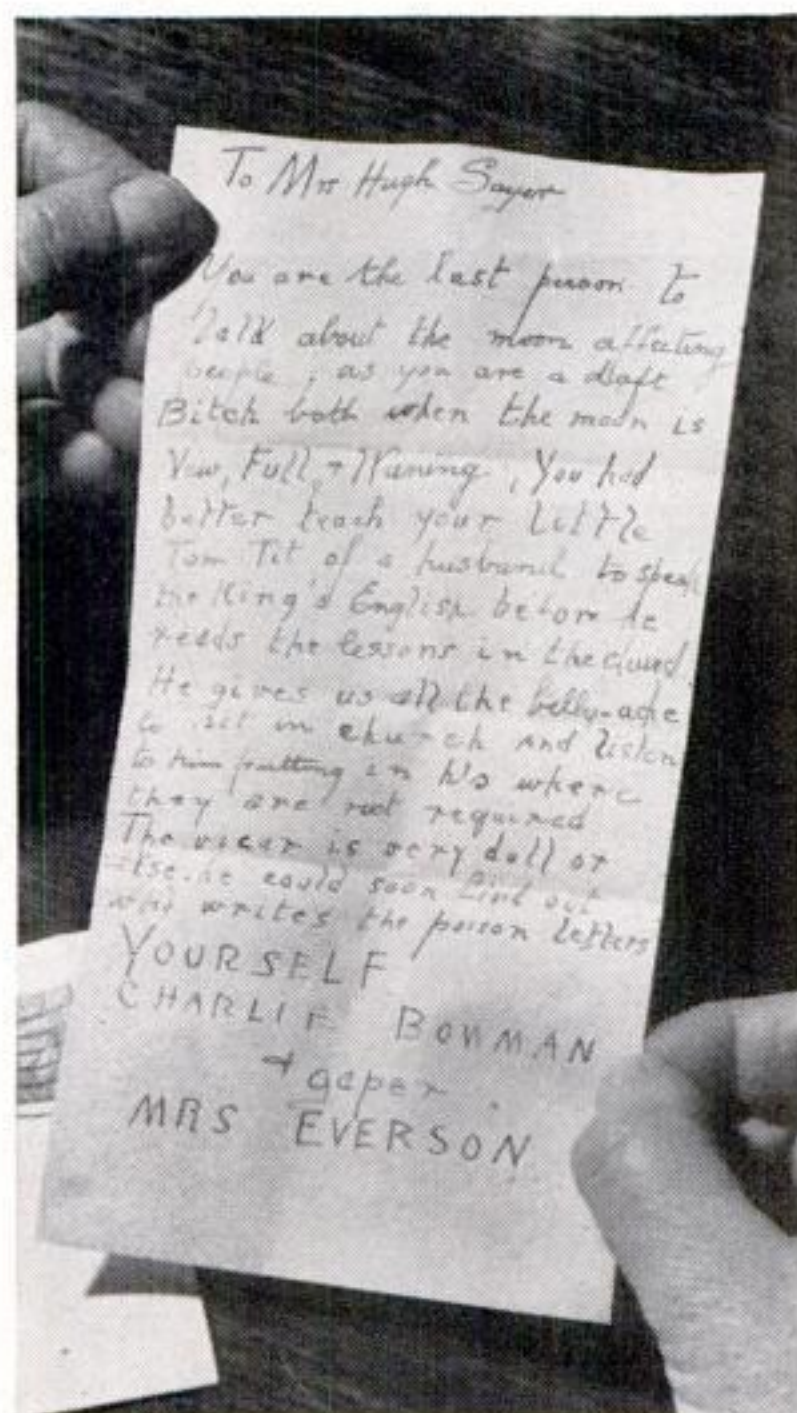 To Mrs Hugh Sayer
You are the last person to
Talk about the moon affecting
people, as you are a daft
Bitch both when the moon is
New, Full, + Waning, You had
better teach your little
Tom Tit of a husband to speak
the King's English before he
reads the lessons in the church.
He gives us all the belly-ache
to sit in church and listen
to him putting in Hs where
they are not required
The vicar is very dull or
else he could soon find out
who writes the poison letters
YOURSELF
CHARLIE BOWMAN
+ gaper
MRS EVERSON